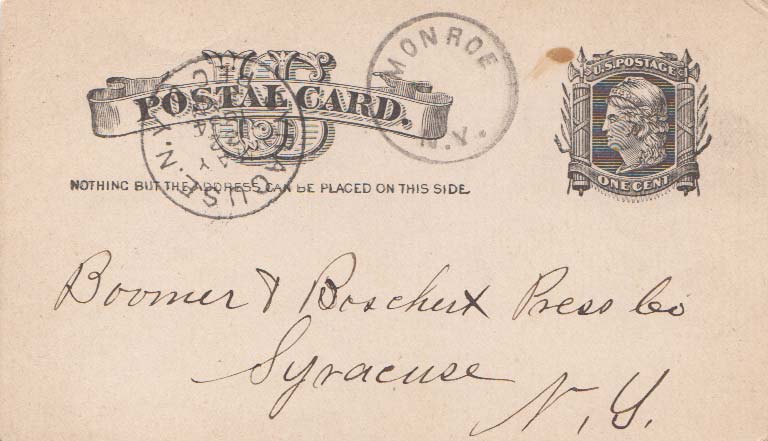 MONROE
N.Y.
U.S. POSTAGE
POSTAL CARD.
SYRACUSE. N.Y.
MAY
NOTHING BUT THE ADDRESS CAN BE PLACED ON THIS SIDE.
ONE CENT
Boomer & Boschert Press Co
Syracuse
N. Y.